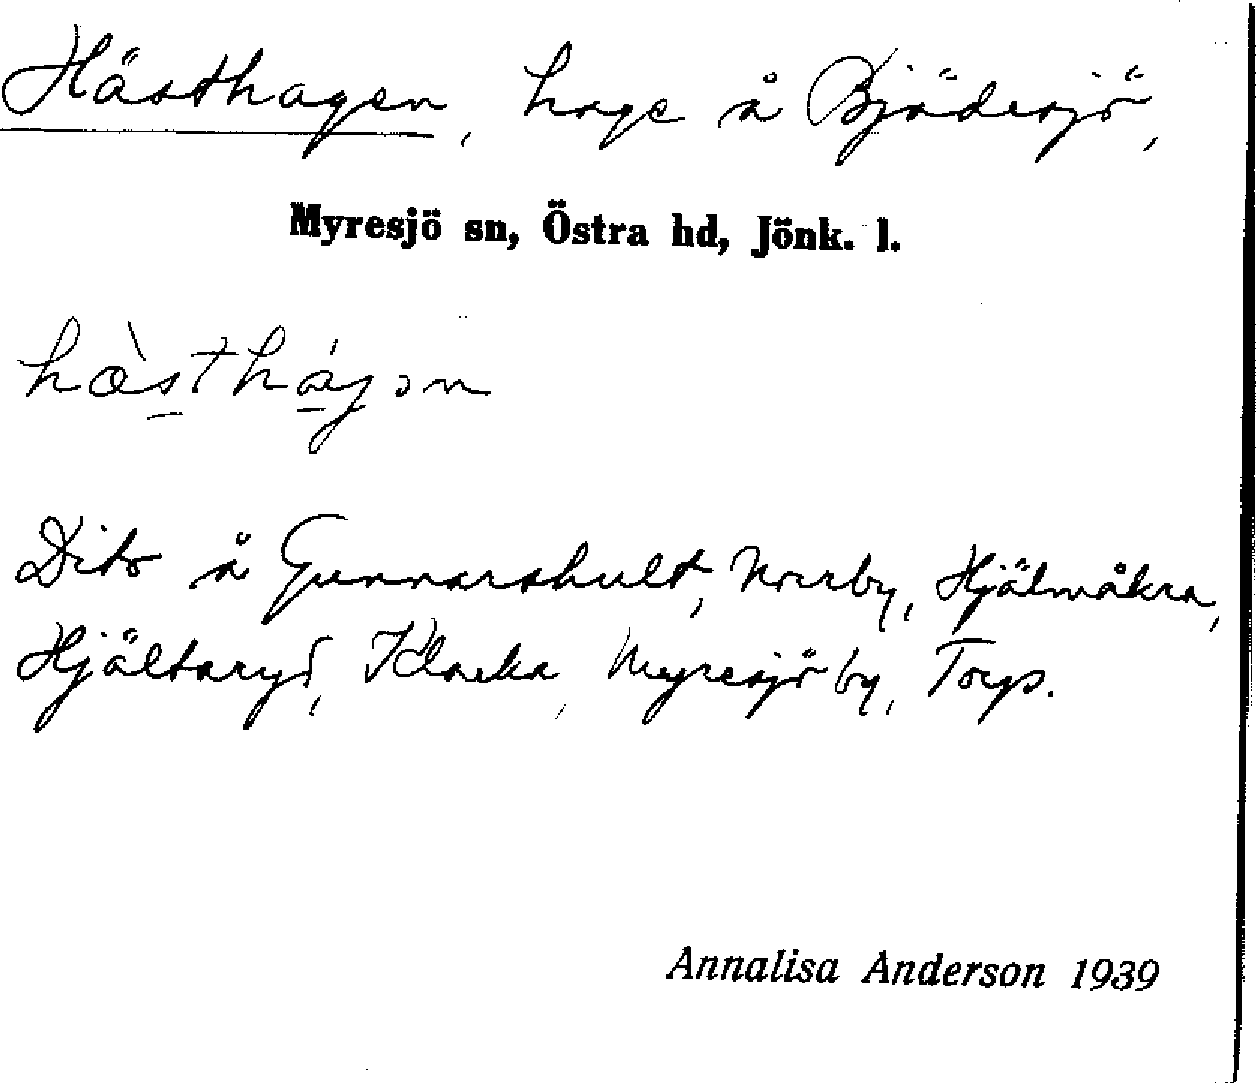 Hästhagen, hage å Bjädesjö,
Myresjö sn, Östra hd, Jönk. l.
hæ̀sthág ən
Dito å Gunnarshult, Norrby, Hjälmåkra,
Hjältaryd, Klacka, Myresjö by, Torp.
Annalisa Anderson 1939